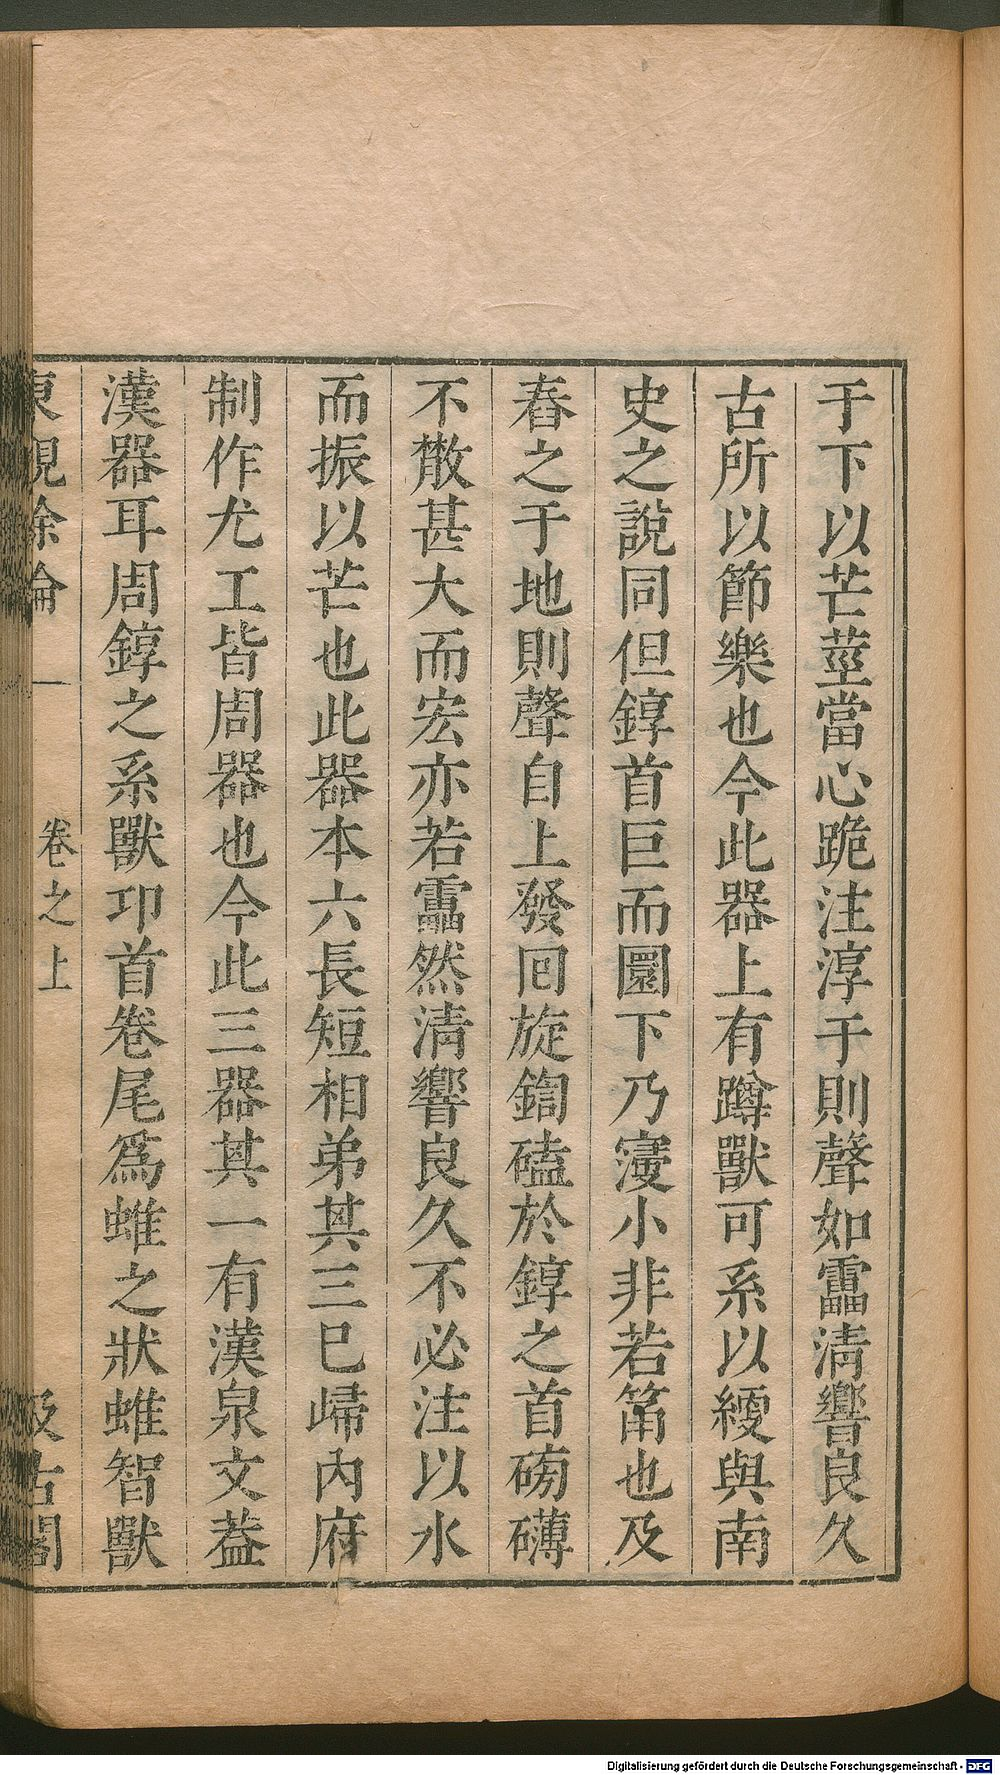 于下以芒莖當心跪注淳于則聲如靁清響良久
古所以節樂也今此器上有蹲獸可系以緶與南
史之說同但錞首巨而圜下乃寖小非若筩也及
舂之于地則聲自上發回旋鍧磕於錞之首磅礴
不散甚大而宏亦若靁然清響良久不必注以水
而振以芒也此器本六長短相弟其三已歸內府
制作尤工皆周器也今此三器其一有漢泉文葢
漢器耳周錞之系獸卬首卷尾爲蜼之狀蜼智獸
東觀餘論 一 卷之上 汲古閣
Digitalisierung gefördert durch die Deutsche Forschungsgemeinschaft - DFG